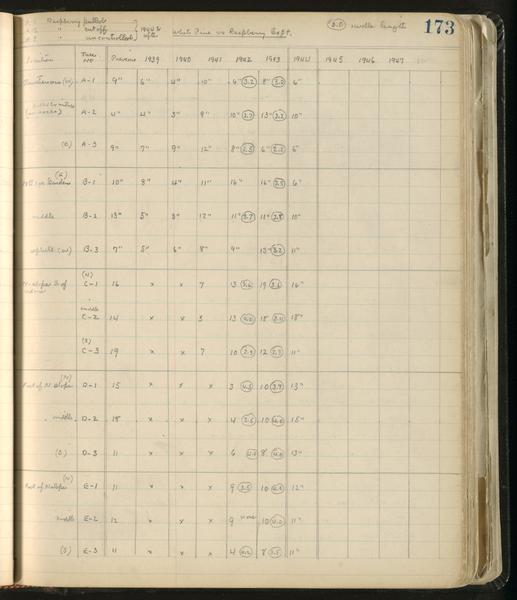 173
Raspberry pulled
" cut off
" uncontrolled
1942 & after
White Pine vs Raspberry Expt.
2.5 needle length
Location Tree No Previous 1939 1940 1941 1942 1943 1944 1945 1946 1947
A-1 9" 6" 4" 10" 6" 3.2 8" 6"
A-2 4" 4" 3" 9" 10" 2.7 13" 10"
(E) A-3 9" 7" 9" 12" 8" 2.5 6" 2.5
B-1 10" 8" 4" 11" 16" 16" 2.5 6"
middle B-2 13" 5" 3" 12" 11" 3.7 11" 2.8 10"
B-3 7" 5" 6" 8" 9" 13" 3.2 11"
(N)
C-1 16 x x 7 13 3.6 19 3.6 16"
middle
C-2 14 x x 3 13 4.0 18"
(S)
C-3 19 x x 7 10 12 11"
(N)
Foot of N. slope D-1 15 x x x 3 4.5 10 3.9 13"
middle D-2 18 x x x 4 10 4.0 15"
(S) D-3 11 x x x 6 4.0 8 4.0 13"
(N)
Foot of N. slope E-1 11 x x x 9 3.5 10 12"
middle E-2 12 x x x 9 none 10 4.0 11"
(S) E-3 11 x x x 4 4.2 8 3.5 11"